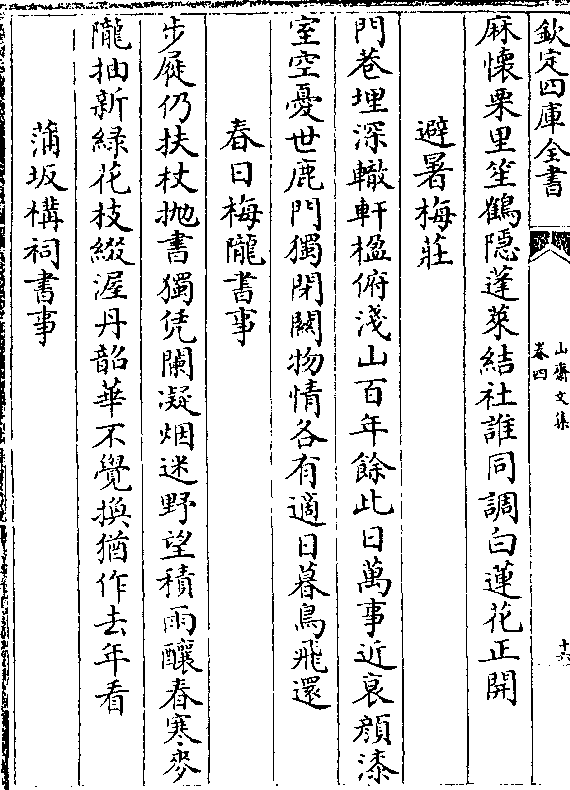 欽定四庫全書
山齋文集
卷四
十六
麻懷栗里笙鶴隱蓬萊結社誰同調白蓮花正開
避暑梅莊
門巷埋深轍軒楹俯淺山百年餘此日萬事近衰顔漆
室空憂世鹿門獨閉關物情各有適日暮鳥飛還
春日梅隴書事
步屧仍扶杖抛書獨凭闌凝烟迷野望積雨釀春寒麥
隴抽新綠花枝綴渥丹韶華不覺換猶作去年看
蒲坂構祠書事